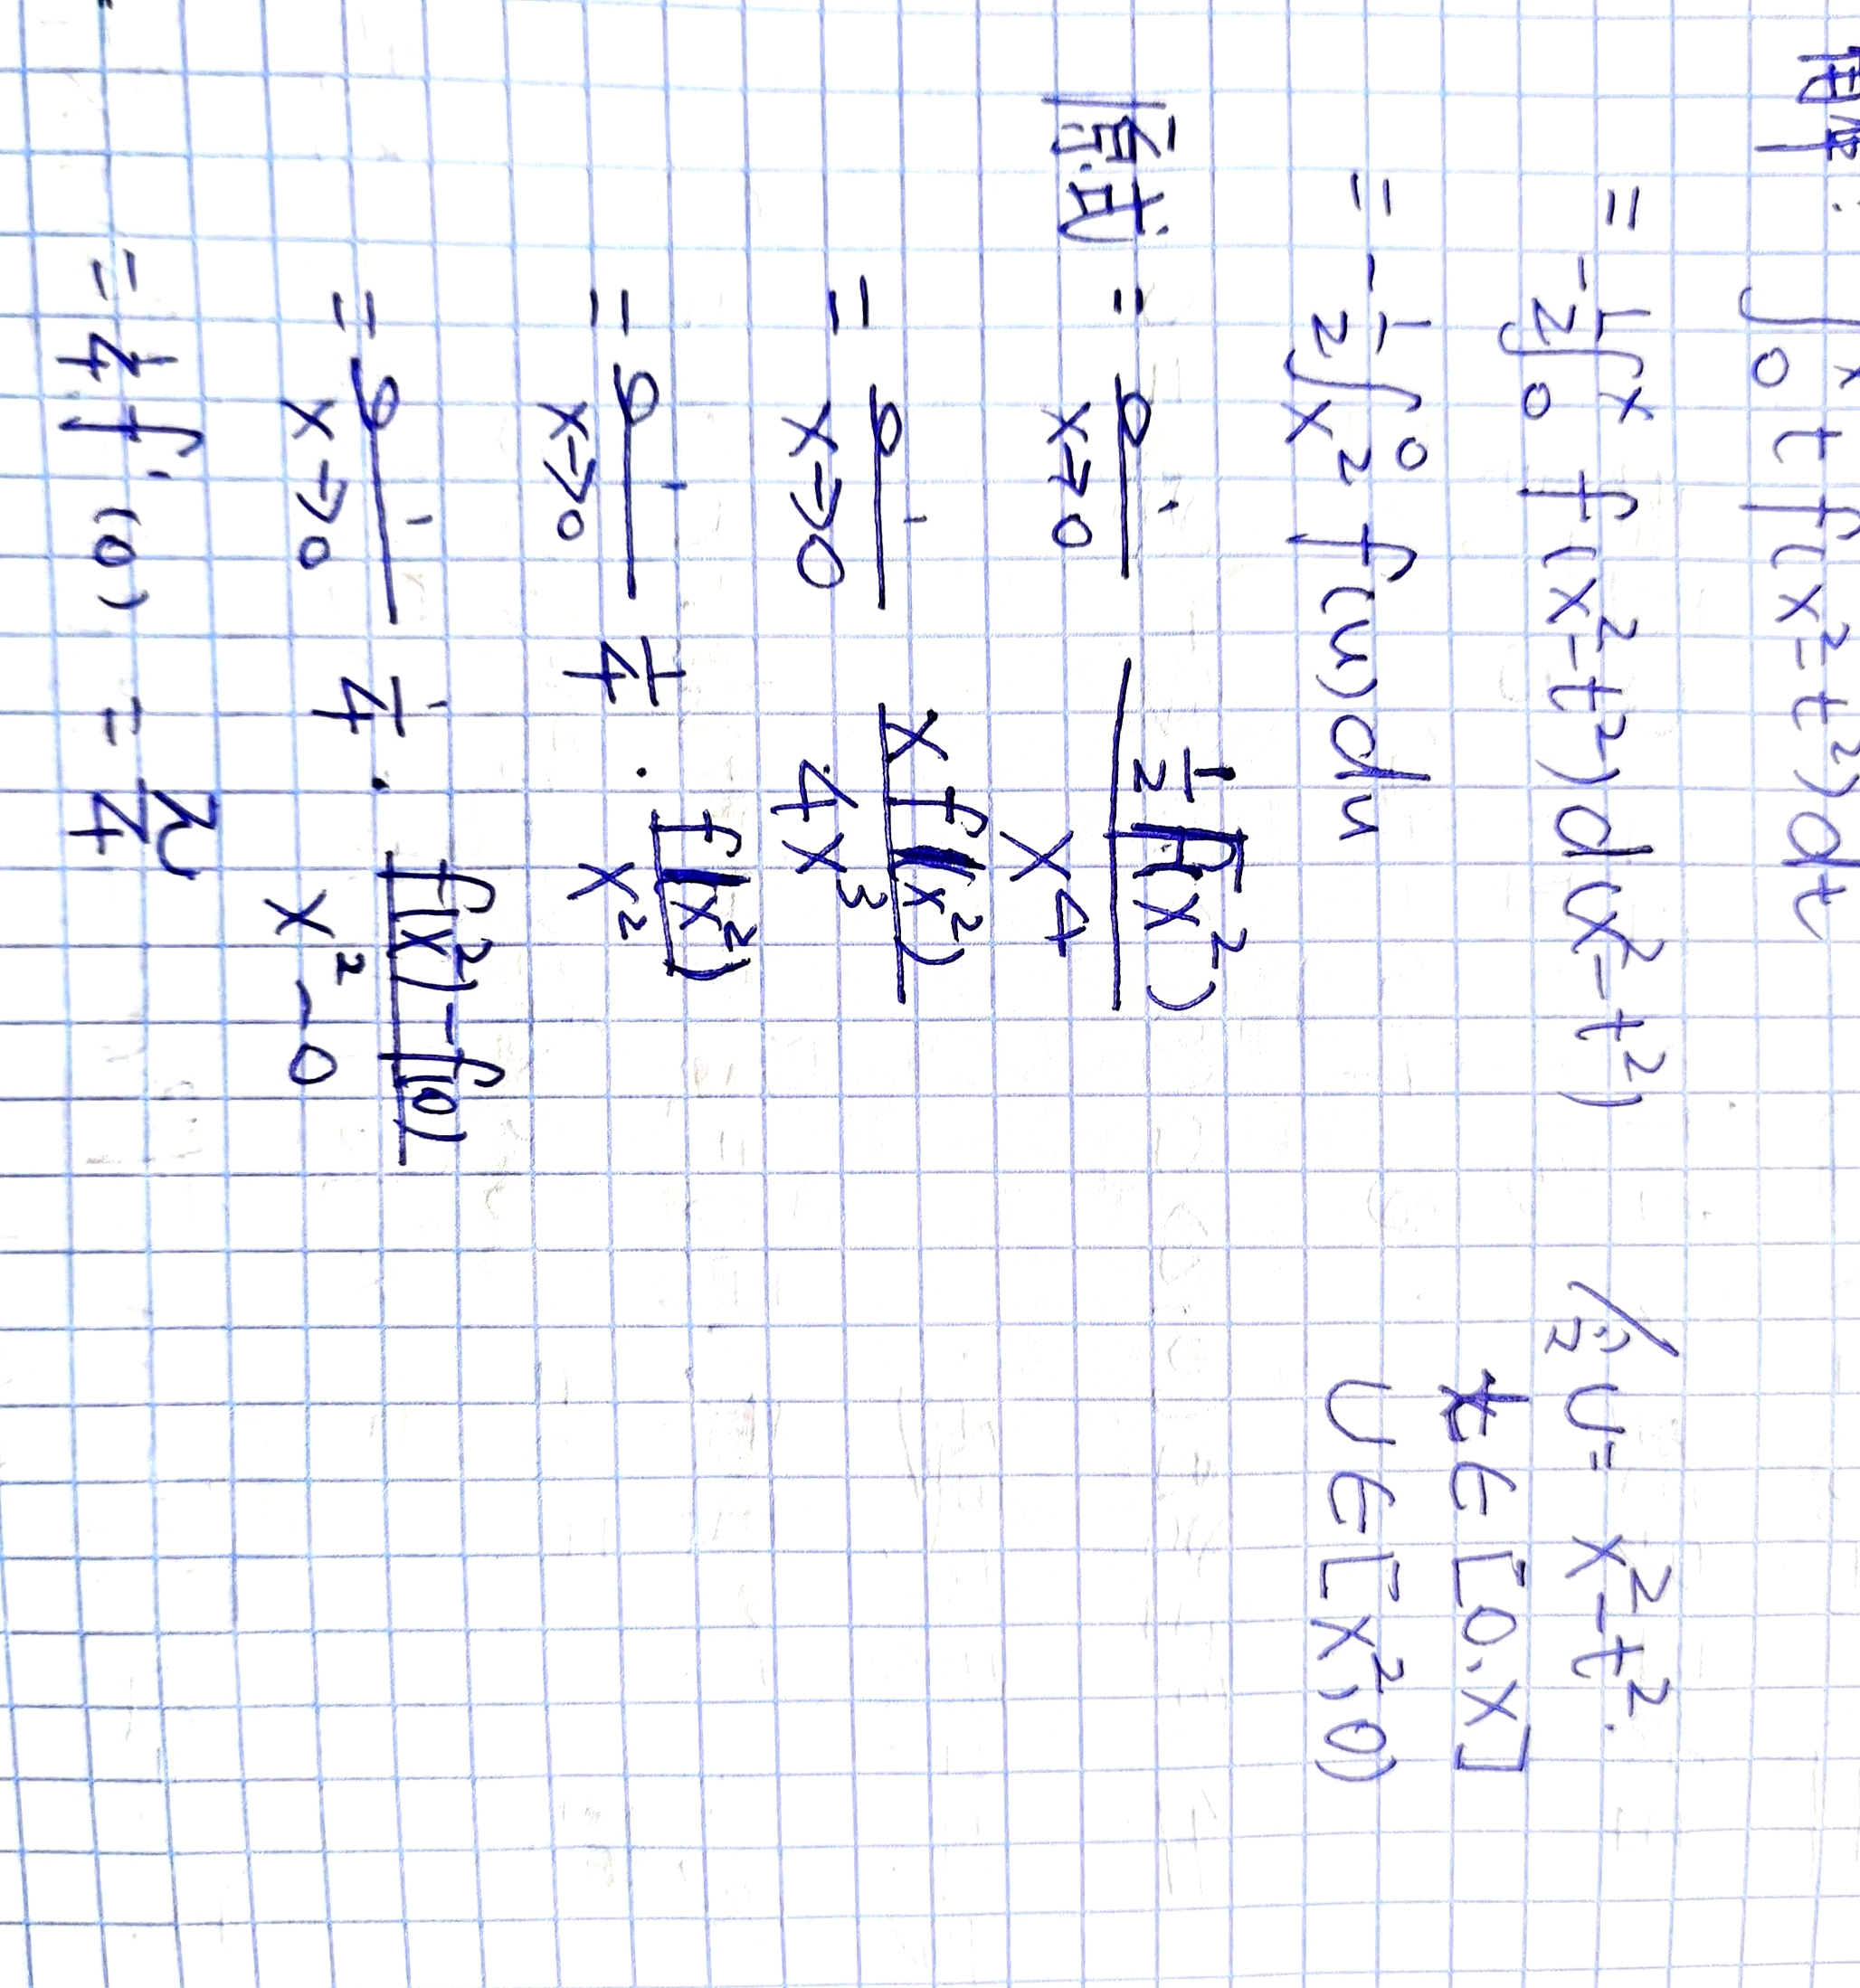 解: ∫₀ˣ t f(x²-t²)dt
= -½∫₀ˣ f(x²-t²)d(x²-t²) 令 u= x²-t².
t∈[0.x]
= -½∫_{x²}^{0} f(u)du u∈[x²,0)
原式 = lim_{x→0} ½F(x²)/x⁴
= lim_{x→0} xf(x²)/4x³
= lim_{x→0} ¼ · f(x²)/x²
= lim_{x→0} ¼ · (f(x²)-f(0))/(x²-0)
= ¼f'(0) =